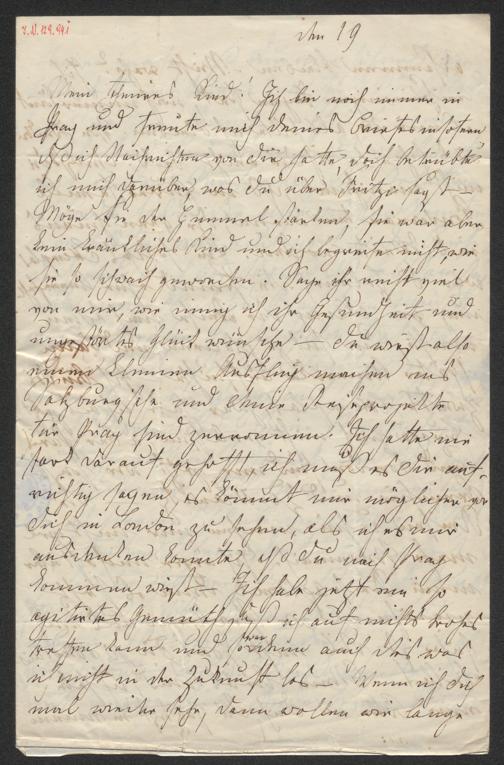 J.N. 129.941
den 19
Mein theures Kind! Ich bin noch immer in
Prag und freute mich deines Briefes insofern
ich Nachrichten von dir hatte doch betrübte
ich mich darüber was du über Fritzi sagst –
Möge sie der Himmel stärken, sie war aber
kein kränkliches Kind und ich begreife nicht wie
sie so schwach geworden. Sage ihr recht viel
von mir, wie innig ich ihr Gesundheit und
ungestörtes Glück wünsche – du wirst also
einen kleinen Ausflug machen ins
Salzburgische und deine Reiseprojekte
für Prag sind zerronnen. Ich hatte nie
stark darauf gehofft ich muß es dir auf-
richtig sagen, es kömmt mir möglicher vor
dich in London zu sehen, als ich es mir
ausdenken konnte daß du nach Prag
kommen wirst – Ich habe jetzt ein so
agitirtes Gemüth daß ich auf nichts frohes
hoffen kann und auch das was
nicht in der Zukunft los – Wenn ich dich
mal wieder sehe, dann wollen wir lange